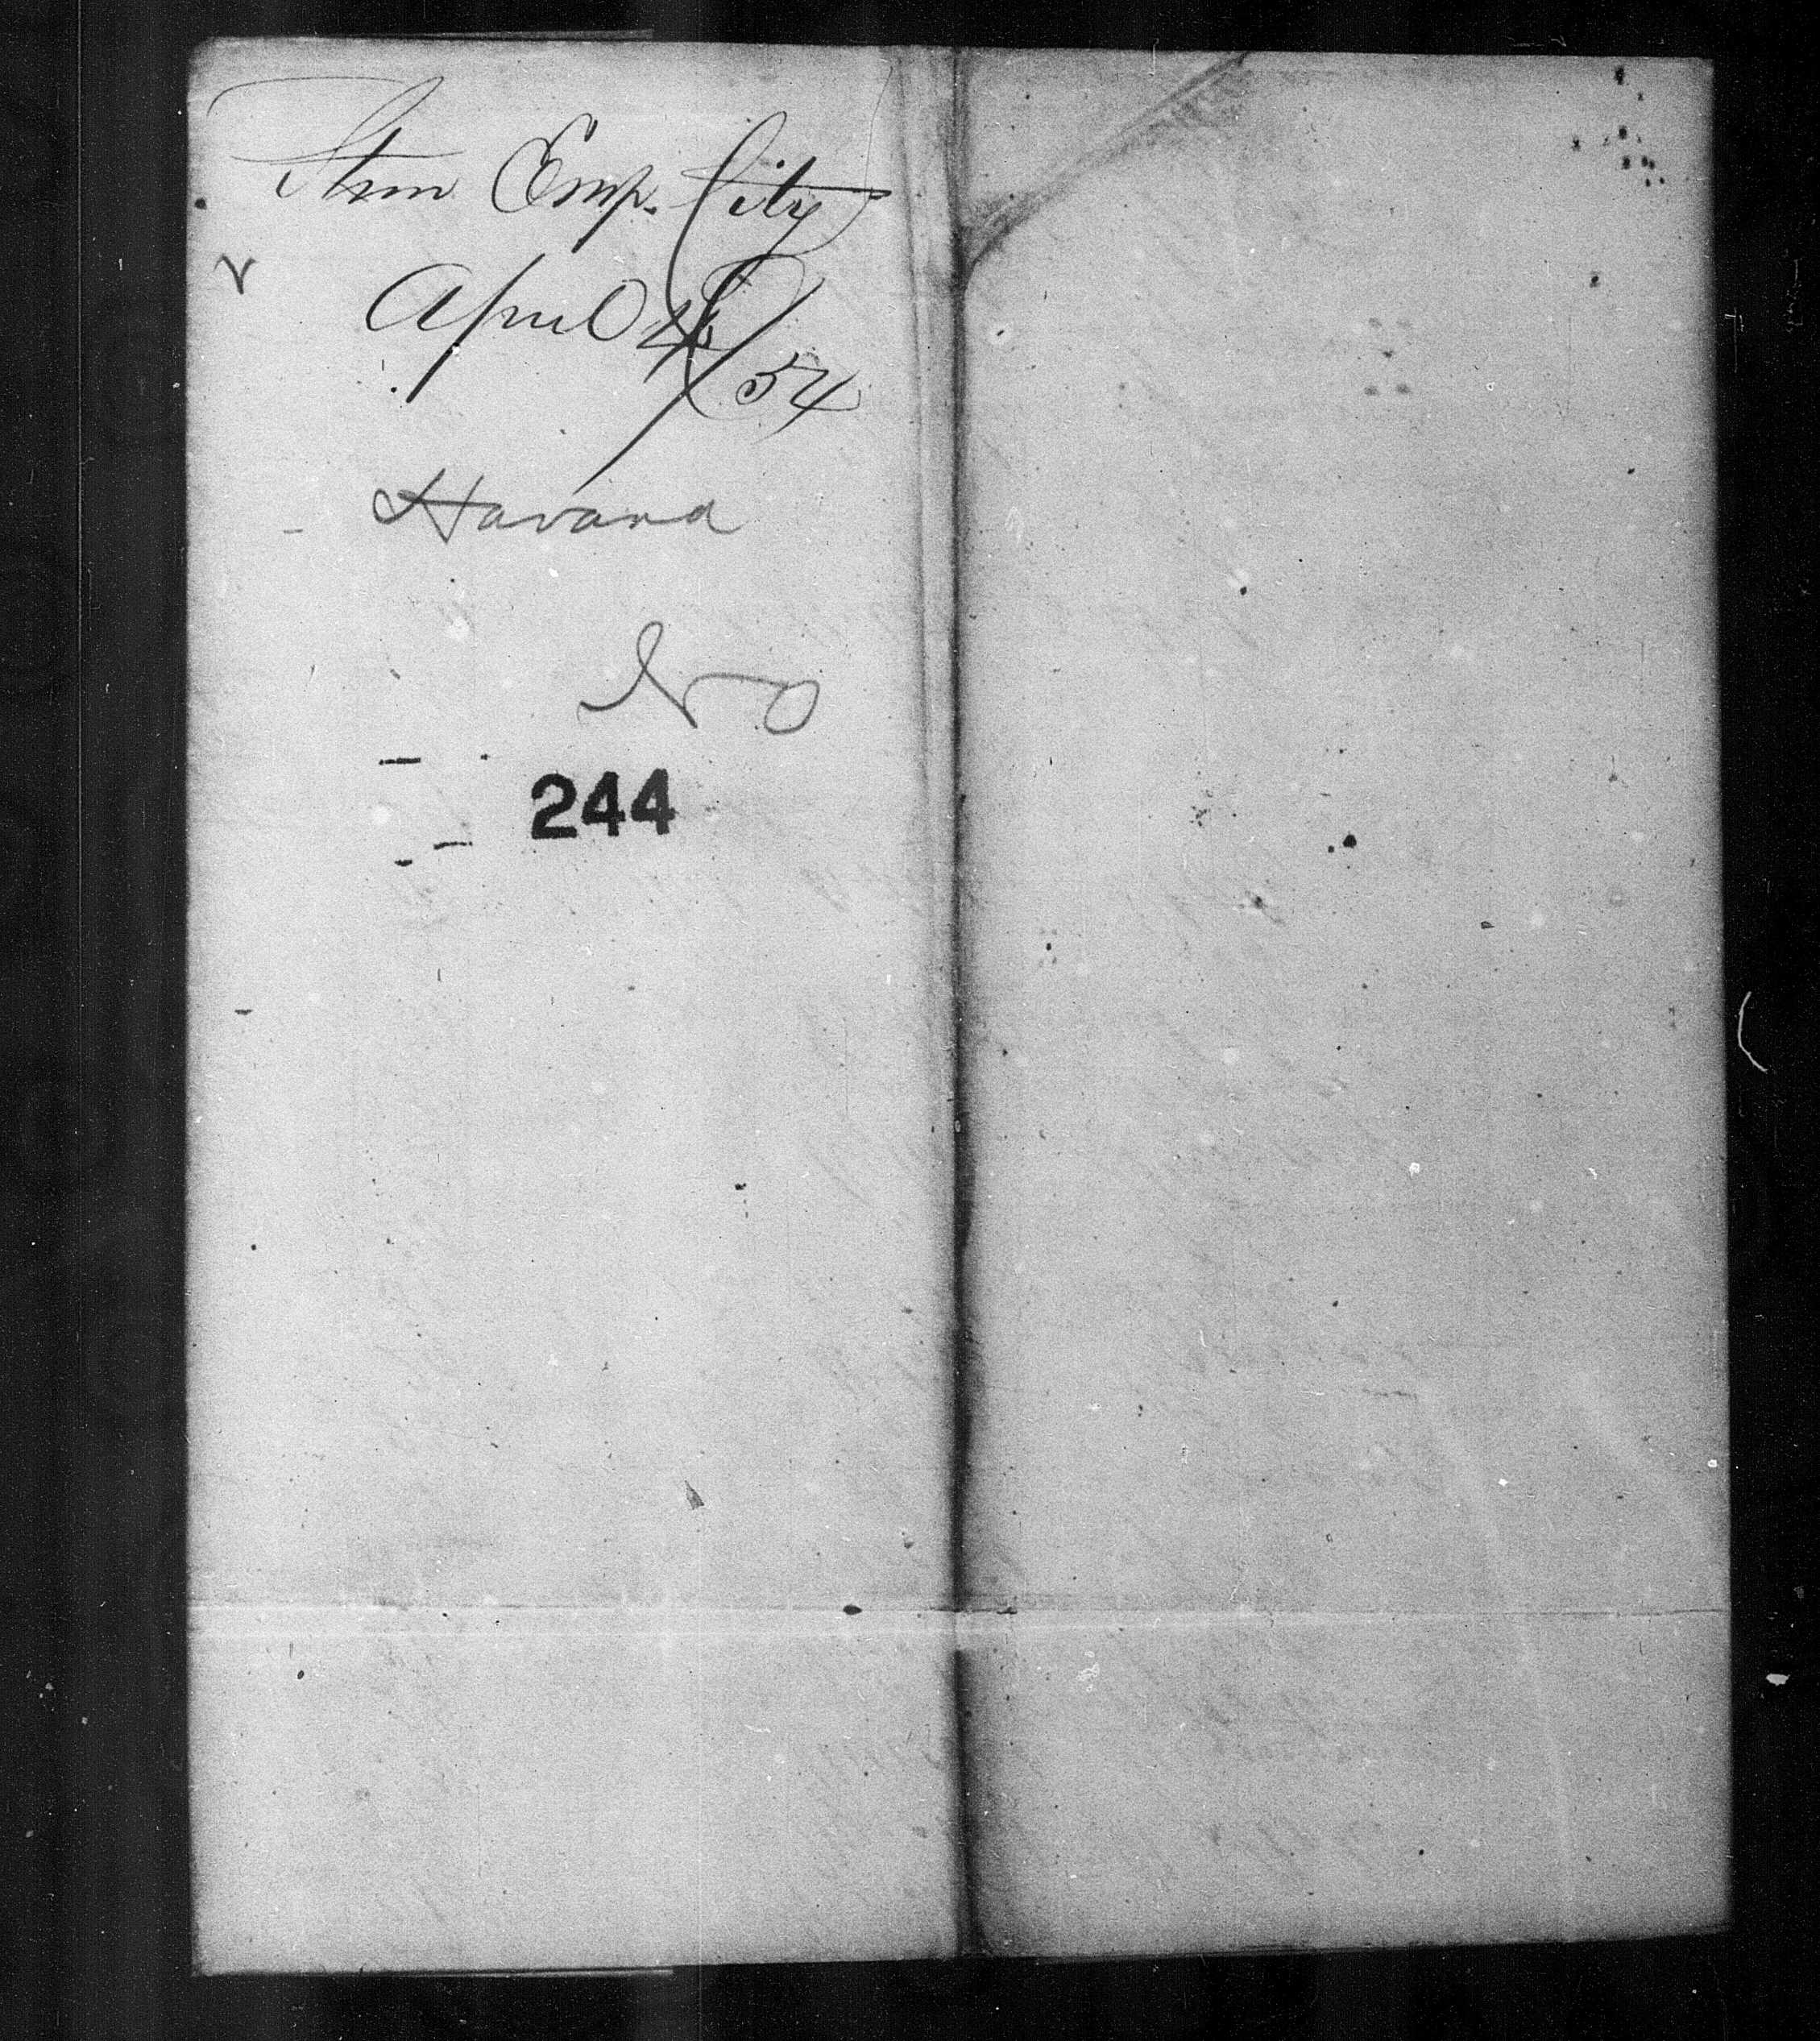 Stm Emp. City
April /54
Havana
NO
244